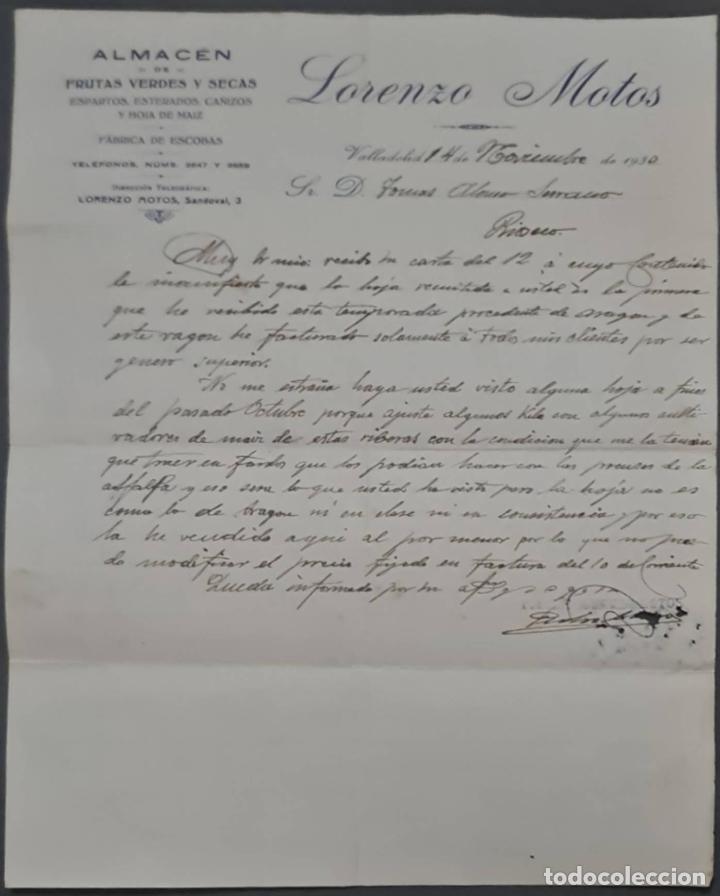 ALMACÉN
DE
FRUTAS VERDES Y SECAS
ESPARTOS, ESTERADOS, CAÑIZOS
Y HOJA DE MAIZ
FÁBRICA DE ESCOBAS
TELÉFONOS, NÚMS. 2647 Y 2659
DIRECCIÓN TELEGRÁFICA:
LORENZO MOTOS, Sandoval, 3
Lorenzo Motos
Valladolid 14 de Noviembre de 1930
Sr. D. Tomas Alonso Serrano
Rioseco.
Muy Sr mio: recibo su carta del 12 á cuyo Contenido
le manifiesto que la hoja remitida a usted es la primera
que he recibido esta temporada procedente de Aragon y de
este vagon he facturado solamente á todos mis clientes por ser
genero superior.
No me estraña haya usted visto alguna hoja a fines
del pasado Octubre porque ajuste algunos Kilo con algunos culti-
vadores de maiz de estas riberas con la condicion que me la tenian
que traer en fardos que los podian hacer con las prensas de la
alfalfa y eso sera lo que usted ha visto pero la hoja no es
como la de Aragon ni en clase ni en consistencia y por eso
la he vendido aqui al por menor por lo que no pue-
do modificar el precio fijado en factura del 10 de Corriente
Queda informado por su
todocoleccion.net